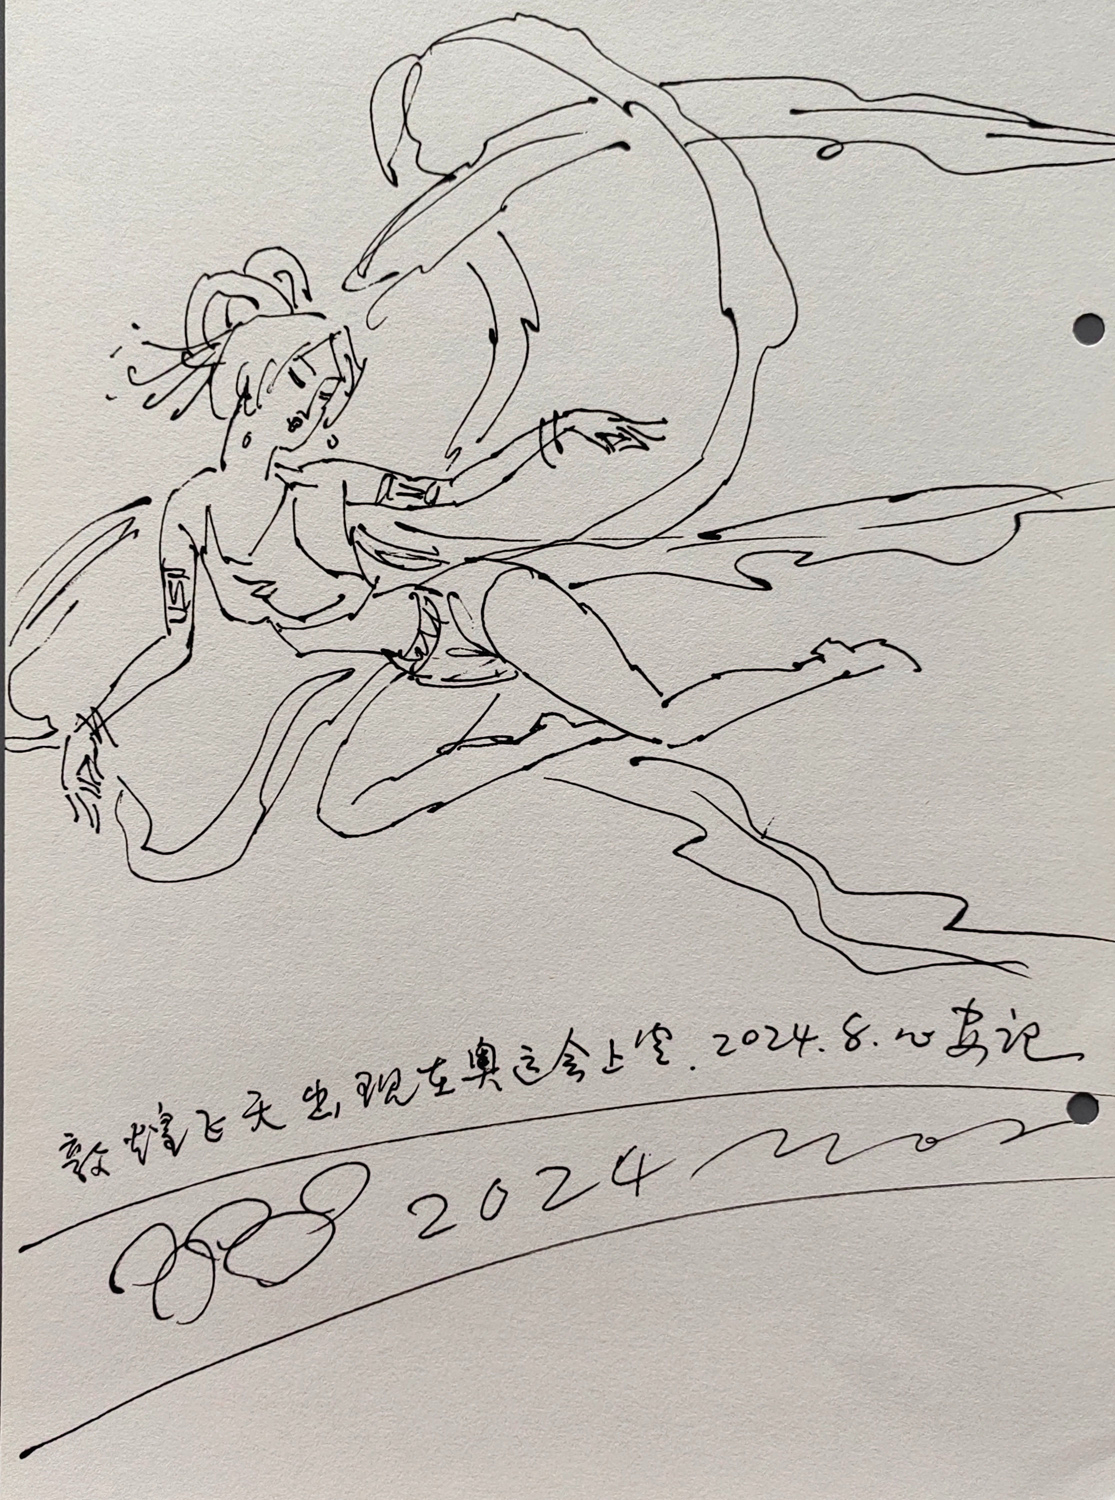 敦煌飞天出现在奥运会上空. 2024.8. 心安记
2024